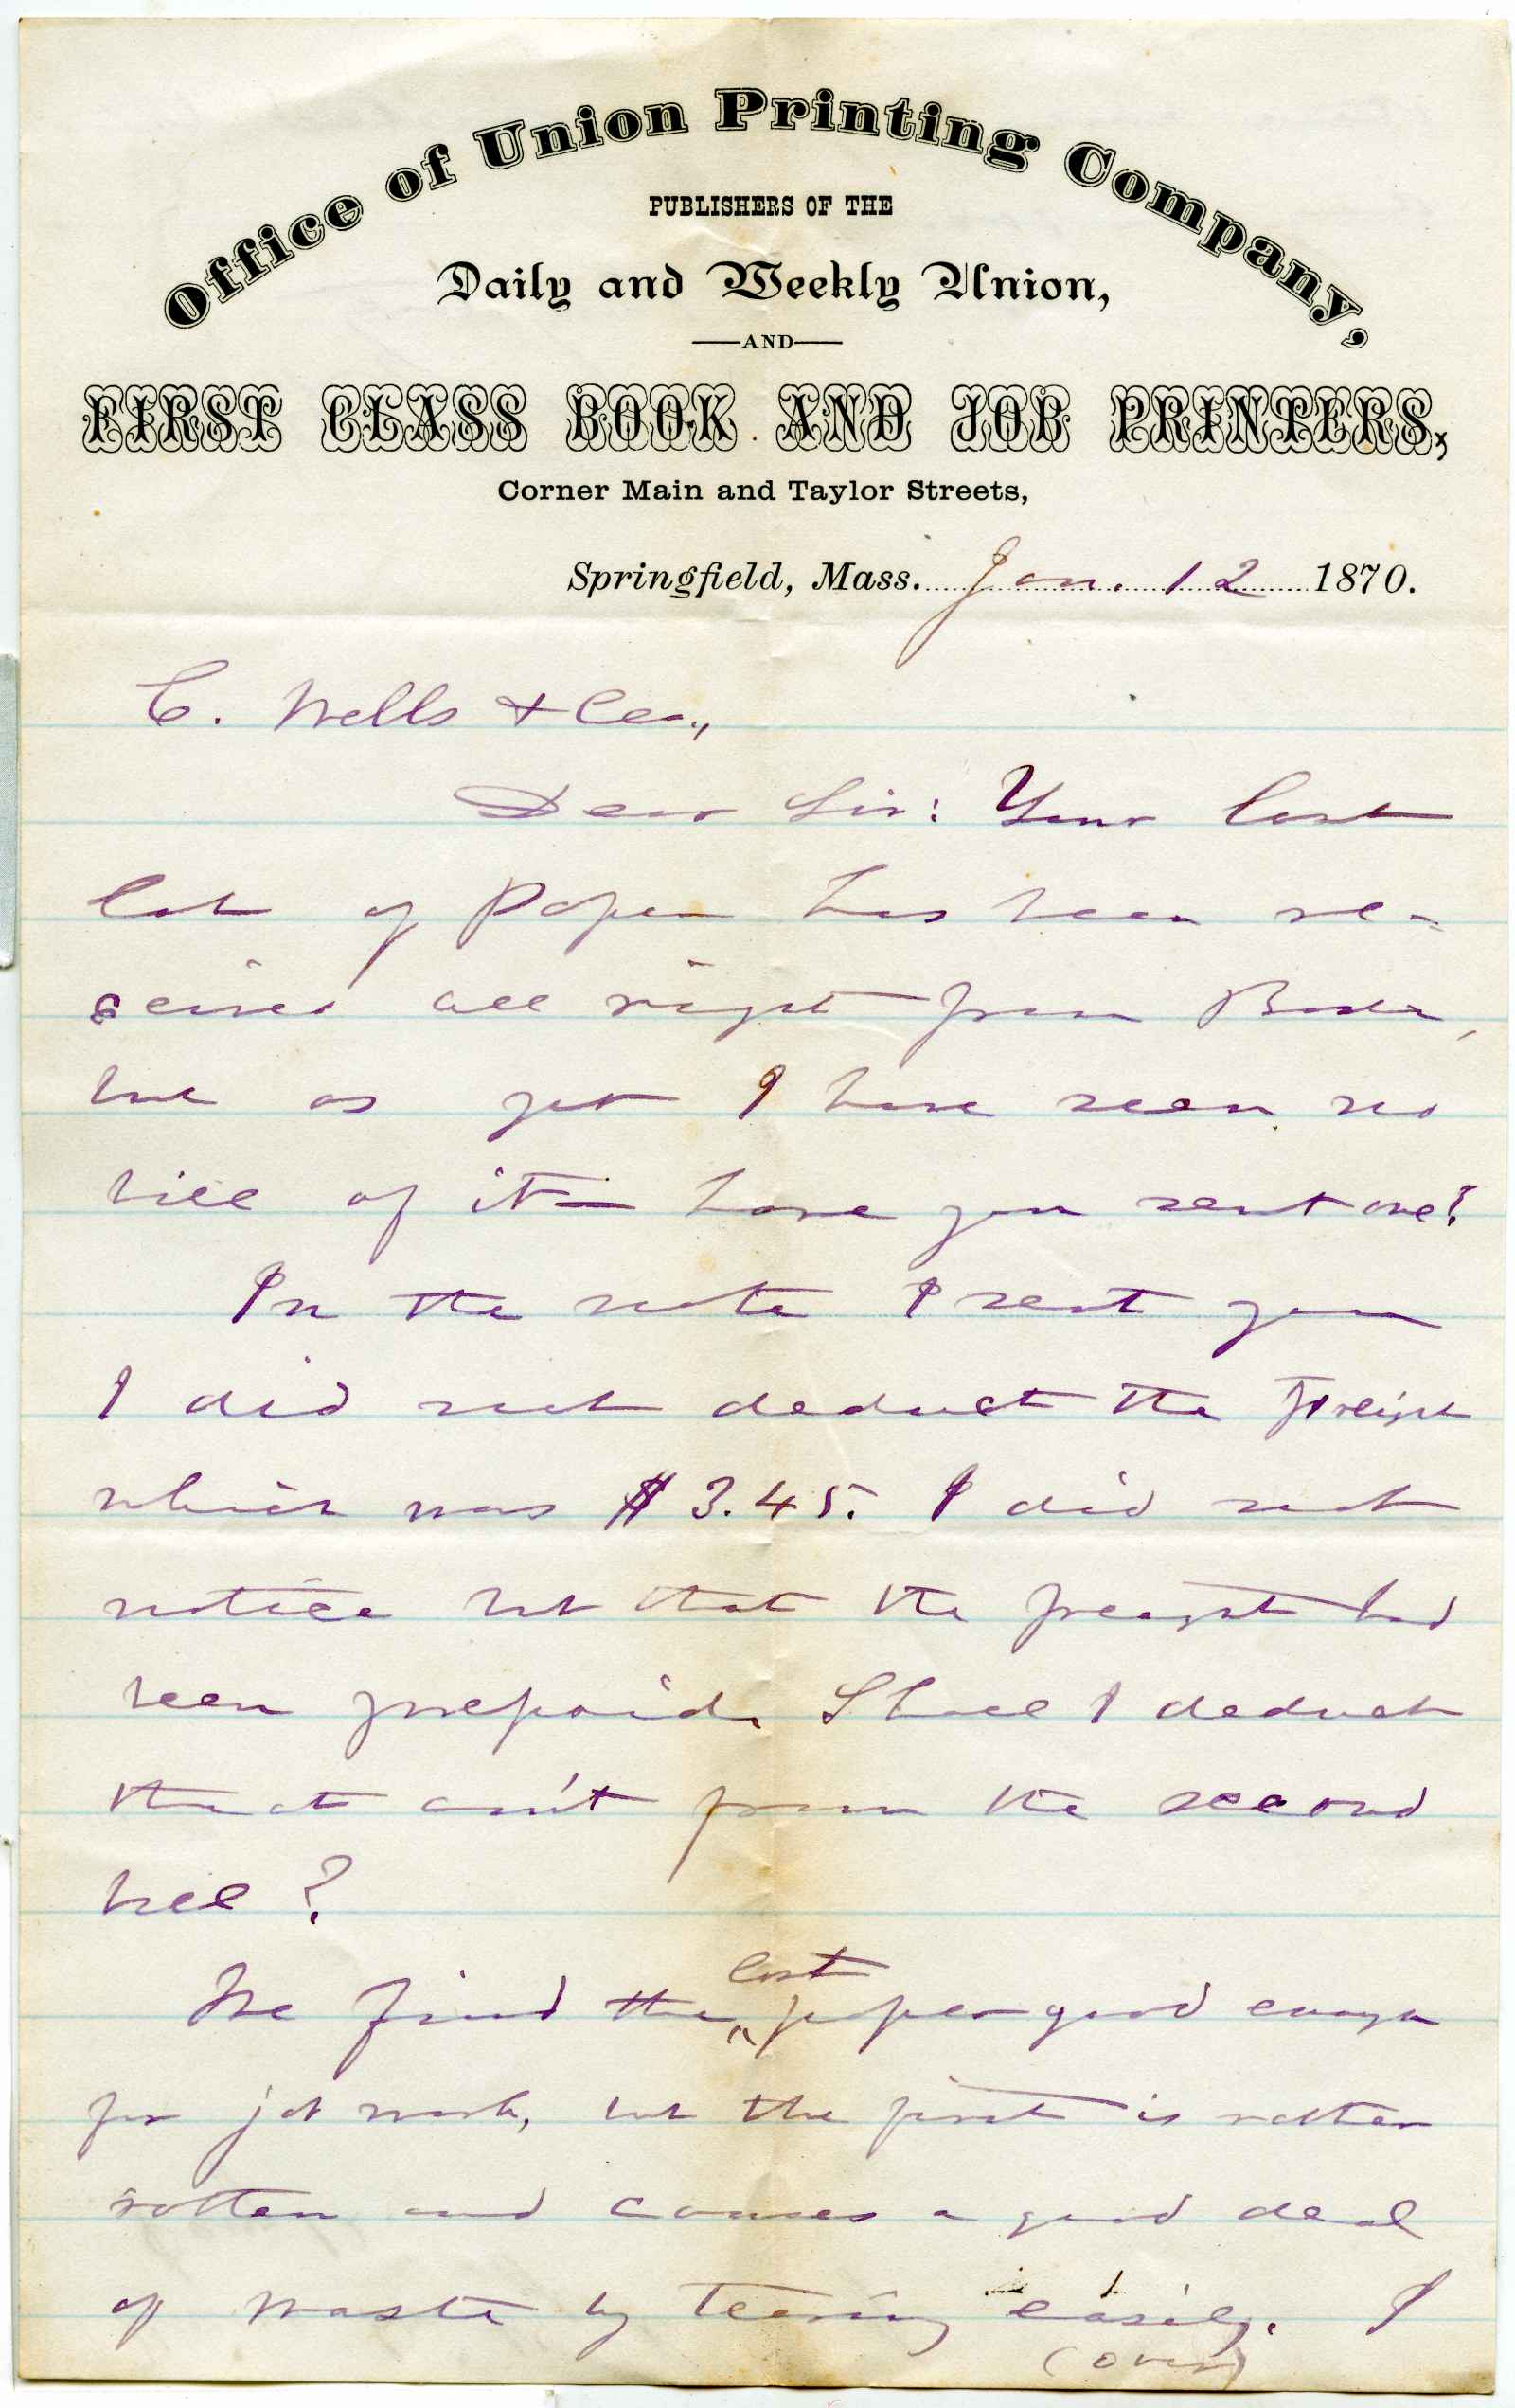 Office of Union Printing Company,
PUBLISHERS OF THE
Daily and Weekly Union,
AND
FIRST CLASS BOOK AND JOB PRINTERS,
Corner Main and Taylor Streets,
Springfield, Mass. Jan. 12 1870.
C. Wells & Co.,
Dear Sir: Your last
lot of Paper has been re-
ceived all right from
but as yet I have seen no
bill of it — have you sent one?
In the note I sent you
I did not deduct the Freight
which was $3.45. I did not
notice but that the freight had
been prepaid. Shall I deduct
that am't from the second
bill?
last
We find the ^ paper good enough
for job work, but the first is rather
rotten and causes a good deal
of waste by tearing easily. I
(over)